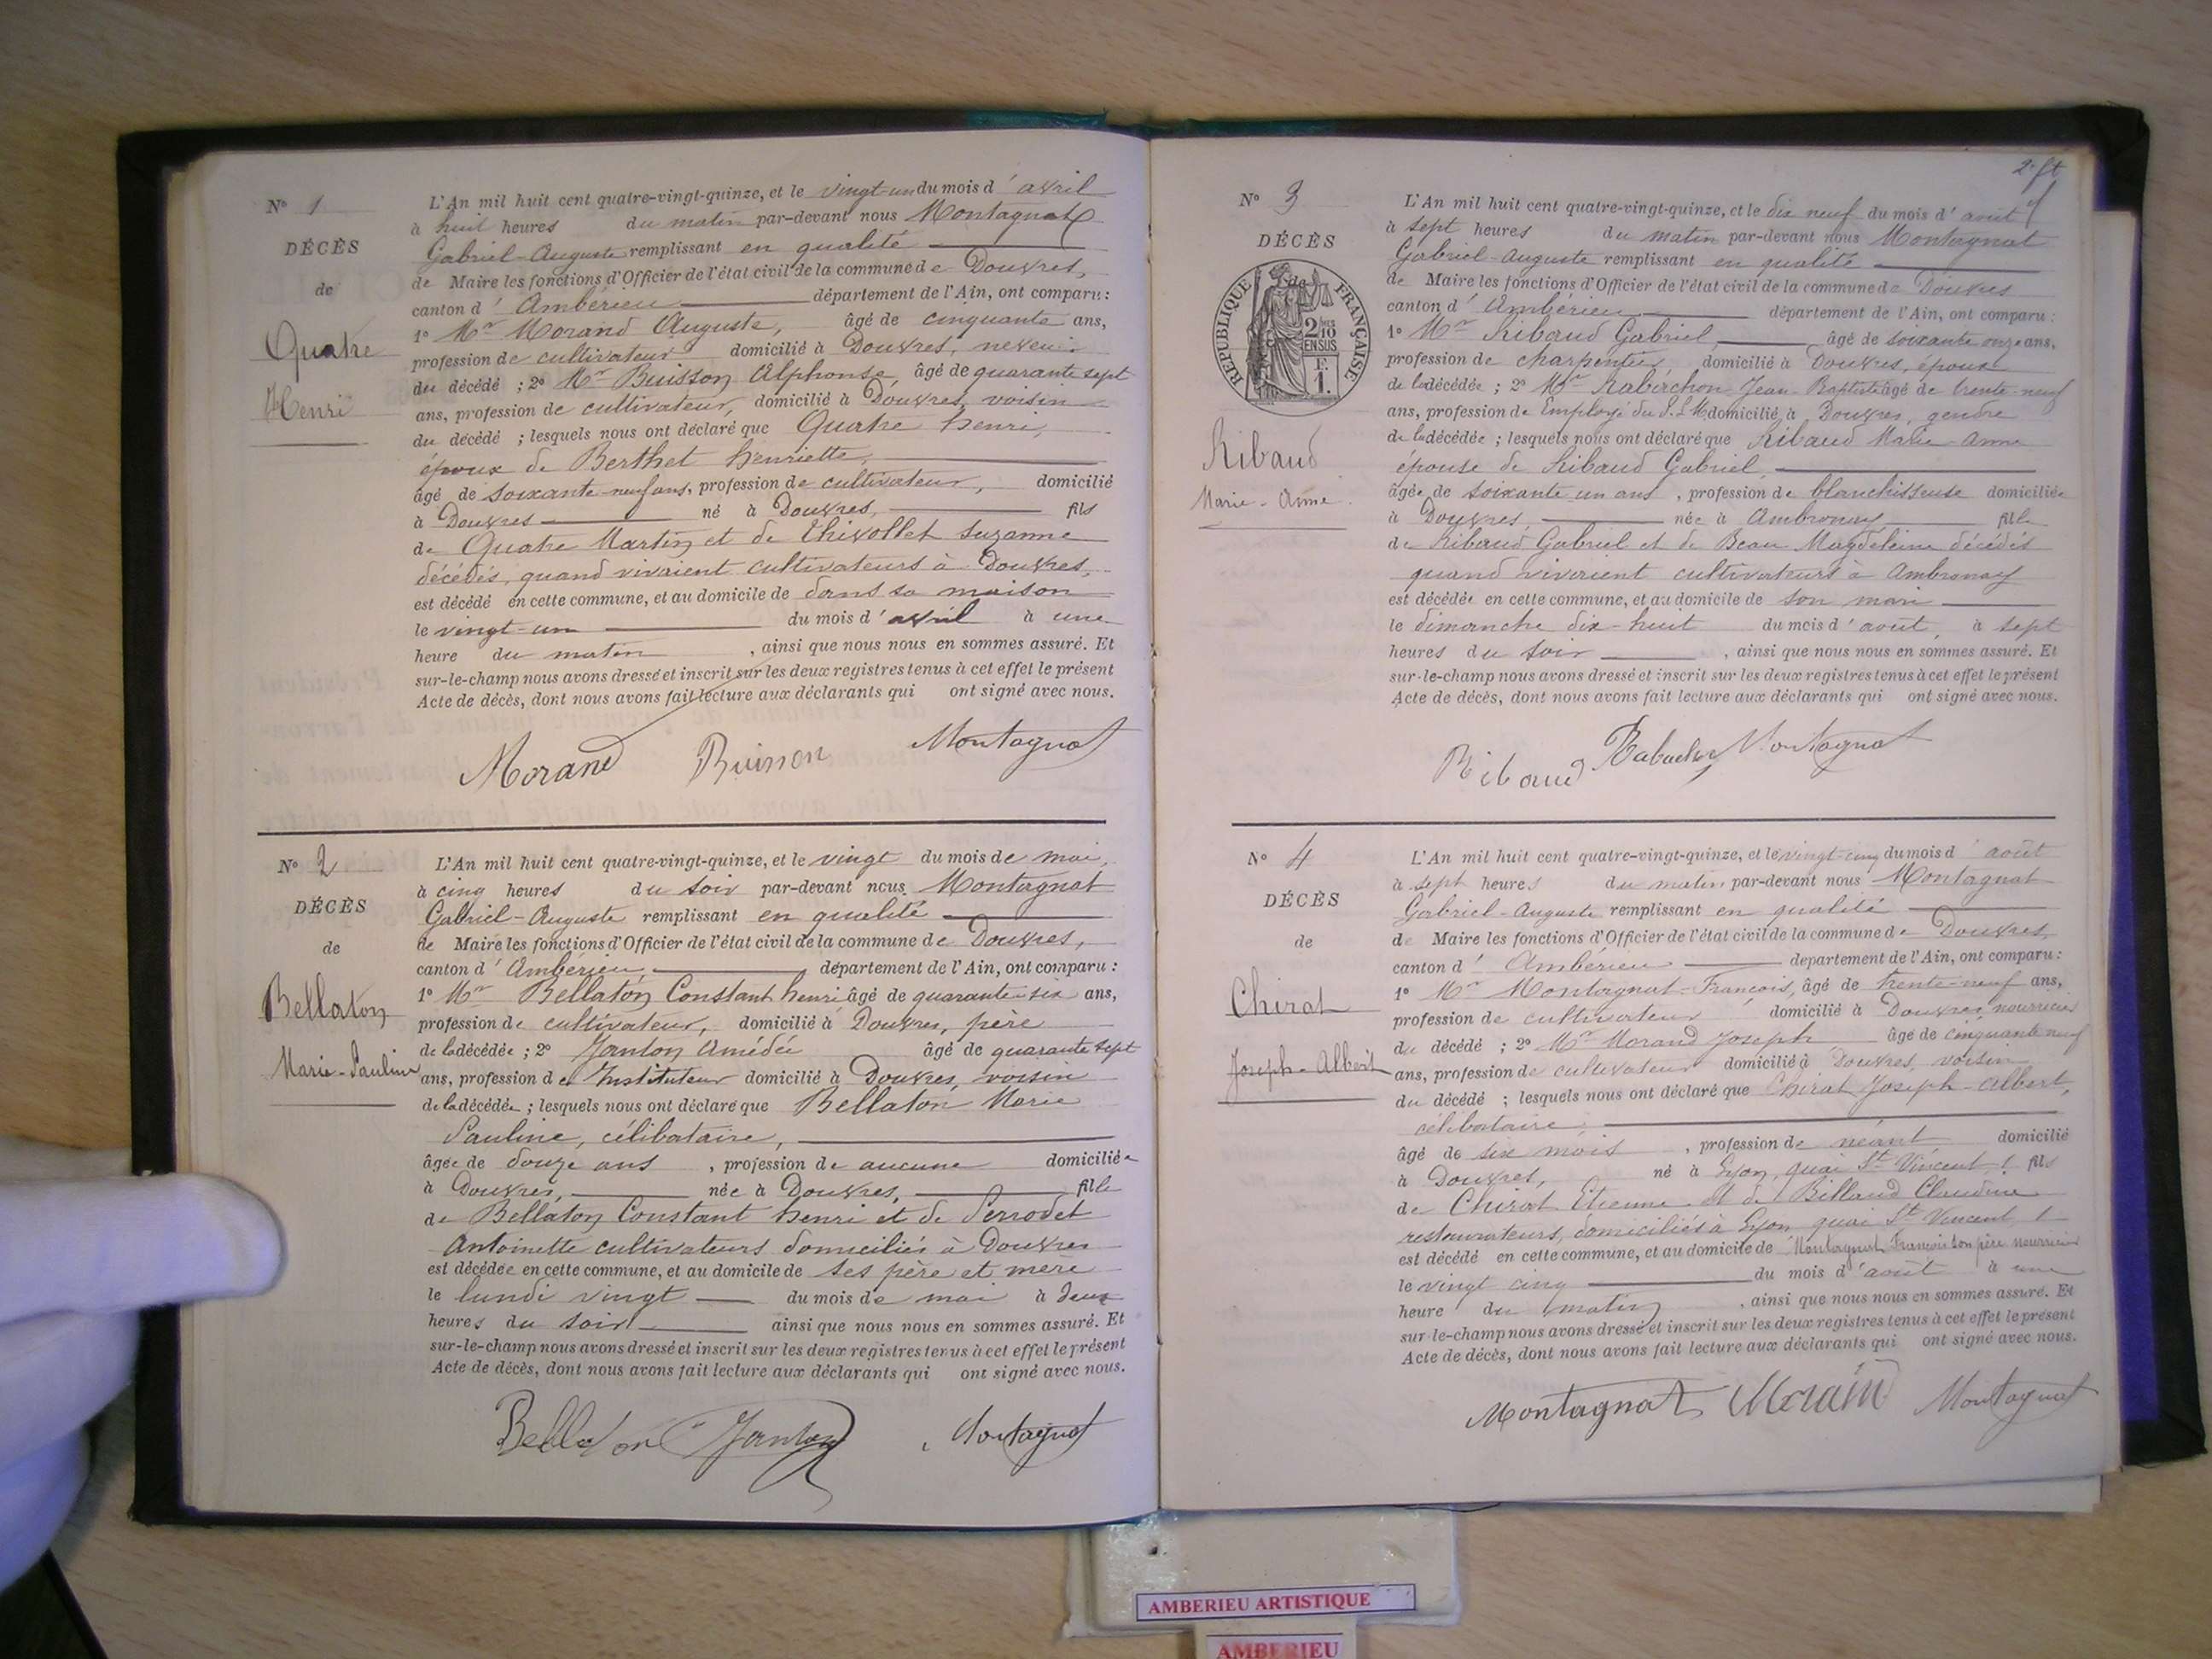 N° 1
DÉCÈS
de
Quatre
Henri
L'An mil huit cent quatre-vingt-quinze, et le vingt-un du mois d'avril
à huit heures du matin par-devant nous Montagnat
Gabriel-Auguste remplissant en qualité
de Maire les fonctions d'Officier de l'état civil de la commune de Douvres,
canton d'Ambérieu département de l'Ain, ont comparu :
1° Mr Morand Auguste, âgé de cinquante ans,
profession de cultivateur domicilié à Douvres, neveu
du décédé ; 2° Mr Buisson Alphonse, âgé de quarante sept
ans, profession de cultivateur, domicilié à Douvres, voisin
du décédé ; lesquels nous ont déclaré que Quatre Henri,
époux de Berthet Henriette,
âgé de soixante-neuf ans, profession de cultivateur, domicilié
à Douvres né à Douvres, fils
de Quatre Martin et de Thivollet Suzanne
décédés, quand vivaient cultivateurs à Douvres,
est décédé en cette commune, et au domicile de dans sa maison
le vingt-un du mois d'avril à une
heure du matin, ainsi que nous nous en sommes assuré. Et
sur-le-champ nous avons dressé et inscrit sur les deux registres tenus à cet effet le présent
Acte de décès, dont nous avons fait lecture aux déclarants qui ont signé avec nous.
Morand Buisson Montagnat
N° 2
DÉCÈS
de
Bellaton
Marie-Pauline
L'An mil huit cent quatre-vingt-quinze, et le vingt du mois de mai,
à cinq heures du soir par-devant nous Montagnat
Gabriel-Auguste remplissant en qualité
de Maire les fonctions d'Officier de l'état civil de la commune de Douvres,
canton d'Ambérieu, département de l'Ain, ont comparu :
1° Mr Bellaton Constant henri âgé de quarante-six ans,
profession de cultivateur, domicilié à Douvres, père
de la décédée ; 2° Janton Amédée âgé de quarante sept
ans, profession de Instituteur domicilié à Douvres, voisin
de la décédée ; lesquels nous ont déclaré que Bellaton Marie
Pauline, célibataire,
âgée de douze ans, profession de aucune domiciliée
à Douvres, née à Douvres, fille
de Bellaton Constant henri et de Perrodet
Antoinette cultivateurs domiciliés à Douvres
est décédée en cette commune, et au domicile de ses père et mère
le lundi vingt du mois de mai à deux
heures du soir ainsi que nous nous en sommes assuré. Et
sur-le-champ nous avons dressé et inscrit sur les deux registres tenus à cet effet le présent
Acte de décès, dont nous avons fait lecture aux déclarants qui ont signé avec nous.
Bellaton Janton Montagnat
N° 3
DÉCÈS
de
RÉPUBLIQUE FRANÇAISE
2/10 EN SUS
F.
1.
Ribaud
Marie-Anne
L'An mil huit cent quatre-vingt-quinze, et le dix neuf du mois d'août
à sept heures du matin par-devant nous Montagnat
Gabriel-Auguste remplissant en qualité
de Maire les fonctions d'Officier de l'état civil de la commune de Douvres
canton d'Ambérieu département de l'Ain, ont comparu :
1° Mr Ribaud Gabriel, âgé de soixante onze ans,
profession de charpentier, domicilié à Douvres, époux
de la décédée ; 2° Mr Rabuchon Jean-Baptiste âgé de trente-neuf
ans, profession de Employé du P.L.M domicilié à Douvres, gendre
de la décédée ; lesquels nous ont déclaré que Ribaud Marie-Anne
épouse de Ribaud Gabriel,
âgée de soixante un ans, profession de blanchisseuse domiciliée
à Douvres, née à Ambronay fille
de Ribaud Gabriel et de Beau Magdeleine décédés
quand vivaient cultivateurs à Ambronay
est décédée en cette commune, et au domicile de son mari
le dimanche dix-huit du mois d'août, à sept
heures du soir, ainsi que nous nous en sommes assuré. Et
sur-le-champ nous avons dressé et inscrit sur les deux registres tenus à cet effet le présent
Acte de décès, dont nous avons fait lecture aux déclarants qui ont signé avec nous.
Ribaud Montagnat
N° 4
DÉCÈS
de
Chirat
Joseph-Albert
L'An mil huit cent quatre-vingt-quinze, et le vingt-cinq du mois d'août
à sept heures du matin par-devant nous Montagnat
Gabriel-Auguste remplissant en qualité
de Maire les fonctions d'Officier de l'état civil de la commune de Douvres,
canton d'Ambérieu département de l'Ain, ont comparu :
1° Mr Montagnat-François, âgé de trente-neuf ans,
profession de cultivateur domicilié à Douvres, nourricier
du décédé ; 2° Mr Morand Joseph âgé de cinquante neuf
ans, profession de cultivateur domicilié à Douvres, voisin
du décédé ; lesquels nous ont déclaré que Chirat Joseph-Albert,
célibataire,
âgé de six mois, profession de néant domicilié
à Douvres, né à Lyon, quai St Vincent 1 fils
de Chirat Etienne et de Billaud Claudine
restaurateurs, domiciliés à Lyon quai St Vincent 1
est décédé en cette commune, et au domicile de Montagnat François son père nourricier
le vingt cinq du mois d'août à une
heure du matin, ainsi que nous nous en sommes assuré. Et
sur-le-champ nous avons dressé et inscrit sur les deux registres tenus à cet effet le présent
Acte de décès, dont nous avons fait lecture aux déclarants qui ont signé avec nous.
Montagnat Morand Montagnat
AMBERIEU ARTISTIQUE
AMBERIEU